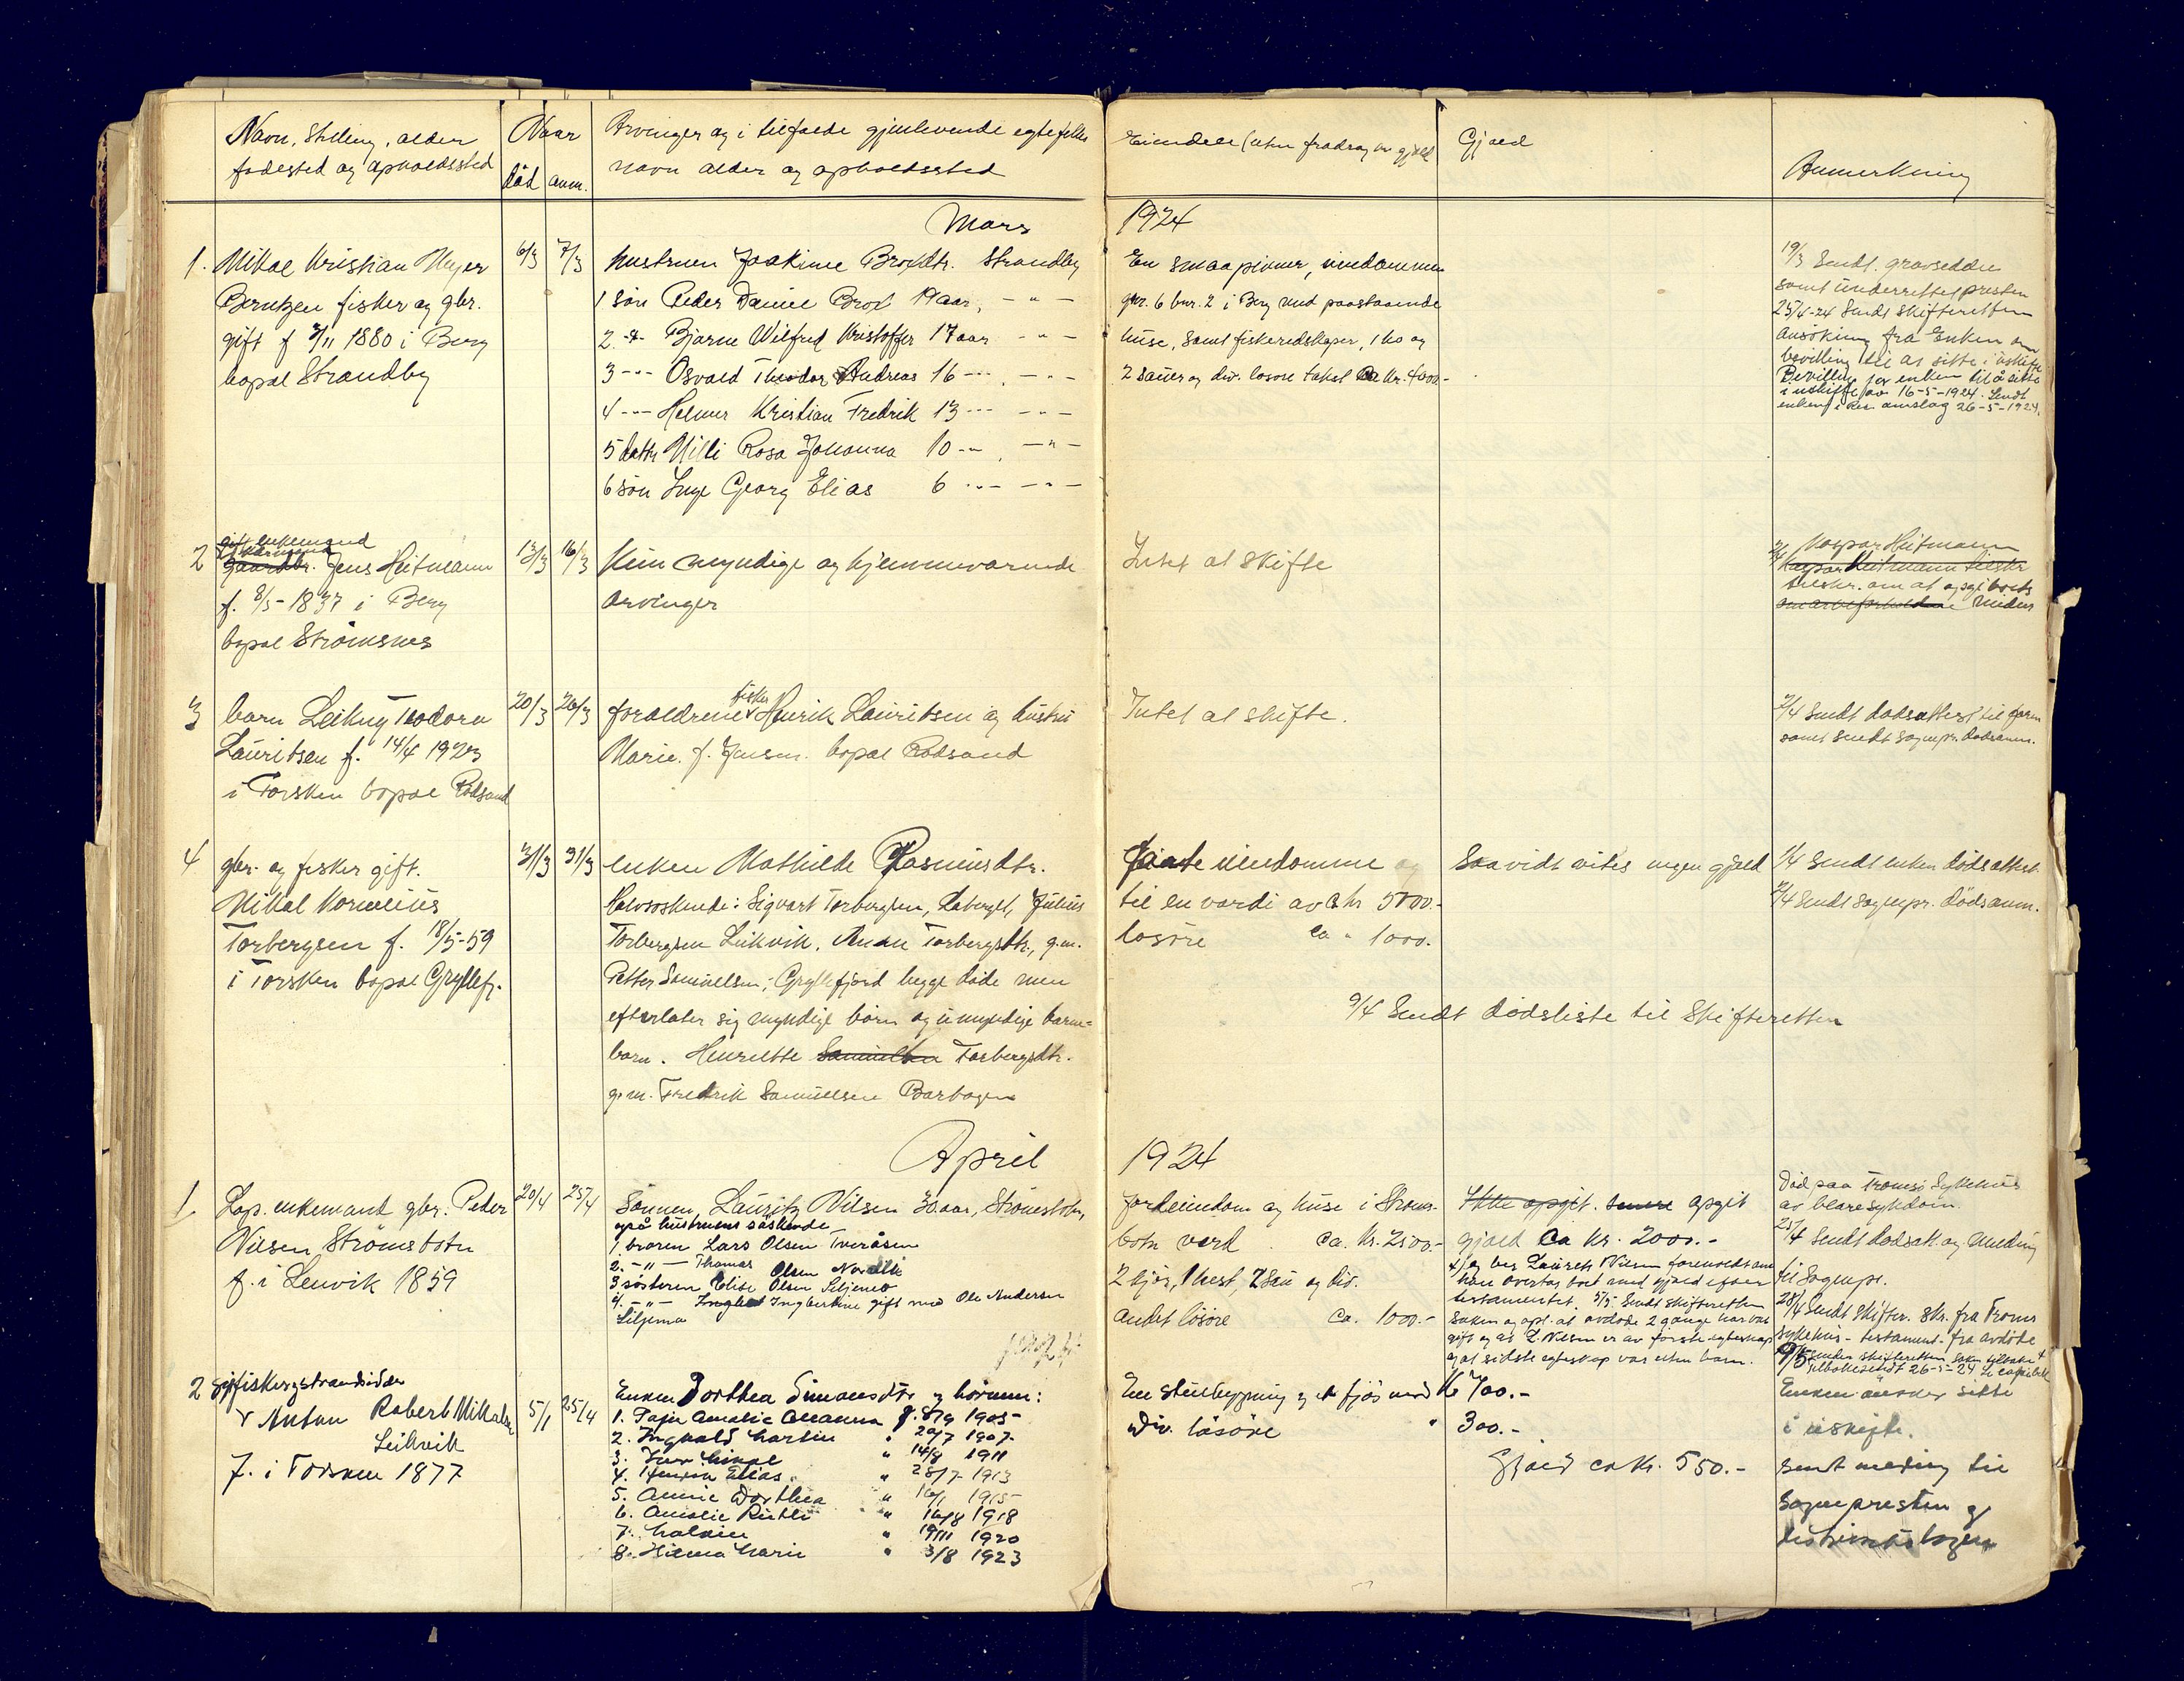 Navn, Stilling, alder
fødested og opholdssted
Naar
død anm.
Arvinger og i tilfælde gjenlevende egtefelles
navn alder og opholdssted
Eiendele (uten fradrag av gjæld
Gjæld
Anmerkning
Mars 1924
1. Mikal Kristian Meyer
Berntzen fisker og gbr.
gift f 3/11 1880 i Berg
bopæl Strandby
6/3 7/3
hustruen Joakime Broxdtr. Strandby
1 søn Peder Daniel Brox 19 aar, - " -
2 -"- Bjarne Wilfred Kristoffer 17 aar - " -
3 -"- Osvald Theodor Andreas 16 -"- - " -
4 -"- Helmer Kristian Fredrik 13 -"- - " -
5 dattr Milli Rosa Johanna 10 -"- - " -
6 søn Inge Georg Elias 6 -"- - " -
En smaa pioner, eiendommen
gnr. 6 bnr. 2 i Berg med paastaaende
huse, samt fiskeredskaper, 1 ko og
2 sauer og div. løsøre takst ca kr. 4000-
19/3 Sendt gravseddel
samt underrettet presten
25/4-24 Sendt skifteretten
ansökning fra Enken om
bevilling til at sitte i uskifte
Bevilling for enken til å sitte
i uskifte av 16-5-1924. Sendt
enken i Rek omslag 26-5-1924.
2 gift enkemand
gaardbr. Jens Heitmann
f. 8/5-1837 i Berg
bopæl Strømsnes
13/3 16/3
Kun myndige og hjemmeværende
arvinger
Intet at skifte
2/4 Kaspar Heitmann
Kaspar Heitmann tilskr
tilskr. om at opgi boets
om arveforholdene midler
3 barn Leikny Teodora
Lauritsen f. 14/4 1923
i Torsken bopæl Rødsand
20/3 26/3
forældrene fisker Henrik Lauritsen og hustru
Marie f. Jensen. bopæl Rødsand
Intet at skifte.
2/4 Sendt dødsattest til foræl
samt sendt sognepr. dødsanm.
4 gbr. og fisker gift.
Mikal Kornelius
Torbergsen f. 18/5-59
i Torsken bopæl Gryllefj.
31/3 31/3
enken Mathilde Rasmusdtr.
Halvsøskende: Sigvart Torbergsen, Julius
Torbergsen Leikvik, Anna Torbergsdtr., g.m.
Petter Samuelsen, Gryllefjord begge døde men
efterlater sig myndige børn og umyndige barne-
barn. Henriette Samuelsen Torbergsdtr.
g.m. Fredrik Samuelsen Barbogen
Faste eiendomme og
til en værdi av ca kr 5000.-
løsøre ca " 1000.
Saavidt vites ingen gjæld
1/4 Sendt enken dödsattest.
2/4 Sendt sognepr. dödsanm.
9/4 Sendt dödsliste til Skifteretten
April 1924
1. Lap. enkemand gbr. Peder
Nilsen Strömsbotn
f. i Lenvik 1859
20/4 25/4
Sönnen, Lauritz Nilsen 30 aar, Strömsbotn,
også hustruens söskende
1. broren Lars Olsen Tveråsen
2. -"- Thomas Olsen Nordli
3 søsteren Elise Olsen Siljenes
4. -"- Ingbertine gift med Ole Andersen
Jordeiendom og huse i Ströms-
botn verd ca. kr. 2500.-
2 kjör, 1 hest, 2 Sau og div.
andet lösöre ca. 1000.-
Ikke opgit. senere opgit
gjæld ca kr. 2000.-
Laurits Nilsen forenvoldt om
han overtar boet med gjæld efter
testamentet. 5/5 Sendt skifteretten
saken og opl. at avdøde 2 gange har vært
gift og at L. Nilsen er av første egteskap
og at sidste egteskap var uten barn.
Død paa Tromsö Sykehus
av blæresykdom.
25/4 Sendt dødsat. og melding
til Sognepr.
28/4 Sendt Skifter. skr. fra Troms
sykehus - testament. fra avdøde
2 fisker og strandsidder
Anton Robert Mikalsen
Leikvik
f. i Torsken 1877
5/1 25/4
Enken Dorthea Simonsdtr og børnene:
1. Amalie f. 8/9 1905-
2. Ingvald Martin " 20/7 1907-
3. " 14/8 1911
4. Henrik Elias " 28/7 1913
5. Annie Dorthea " 16/1 1915-
6. Amalie " 16/8 1918
7. " 19/11 1920
8. Hilma Marie " 3/8 1923
En stuebygning og et fjøs med kr 700.-
Div. løsøre " 300.-
Gjæld ca kr. 550.-
Enken önsker sitte
i uskifte.
Sent melding til
Sognepresten og